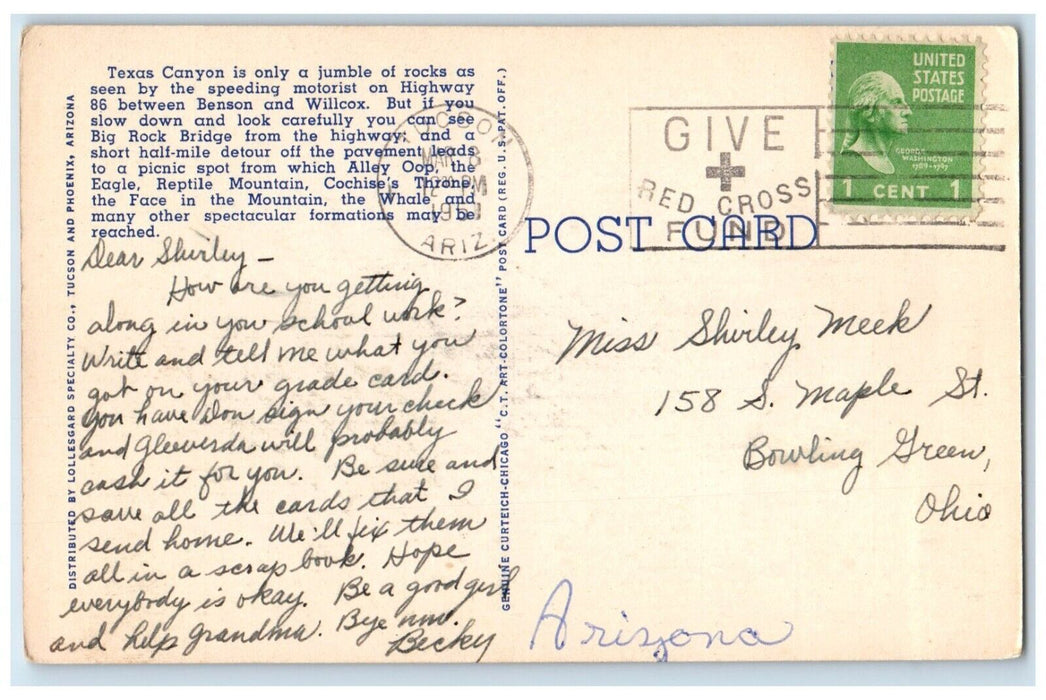 Texas Canyon is only a jumble of rocks as
seen by the speeding motorist on Highway
86 between Benson and Willcox. But if you
slow down and look carefully you can see
Big Rock Bridge from the highway; and a
short half-mile detour off the pavement leads
to a picnic spot from which Alley Oop, the
Eagle, Reptile Mountain, Cochise's Throne,
the Face in the Mountain, the Whale and
many other spectacular formations may be
reached.
Dear Shirley –
How are you getting
along in you school work?
Write and tell me what you
got on your grade card.
You have Don sign your check
and Gleeverda will probably
cash it for you. Be sure and
save all the cards that I
send home. We'll fix them
all in a scrap book. Hope
everybody is okay. Be a good girl
and help grandma. Bye now.
Becky
DISTRIBUTED BY LOLLESGARD SPECIALTY CO., TUCSON AND PHOENIX, ARIZONA
GENUINE CURTEICH-CHICAGO "C.T. ART-COLORTONE" POST CARD (REG. U.S. PAT. OFF.)
TUCSON
MAR 8
12 PM
ARIZ.
GIVE
RED CROSS
FUND
UNITED
STATES
POSTAGE
GEORGE
WASHINGTON
1789-1797
1 CENT 1
POST CARD
Miss Shirley Meek
158 S. Maple St.
Bowling Green,
Ohio
Arizona